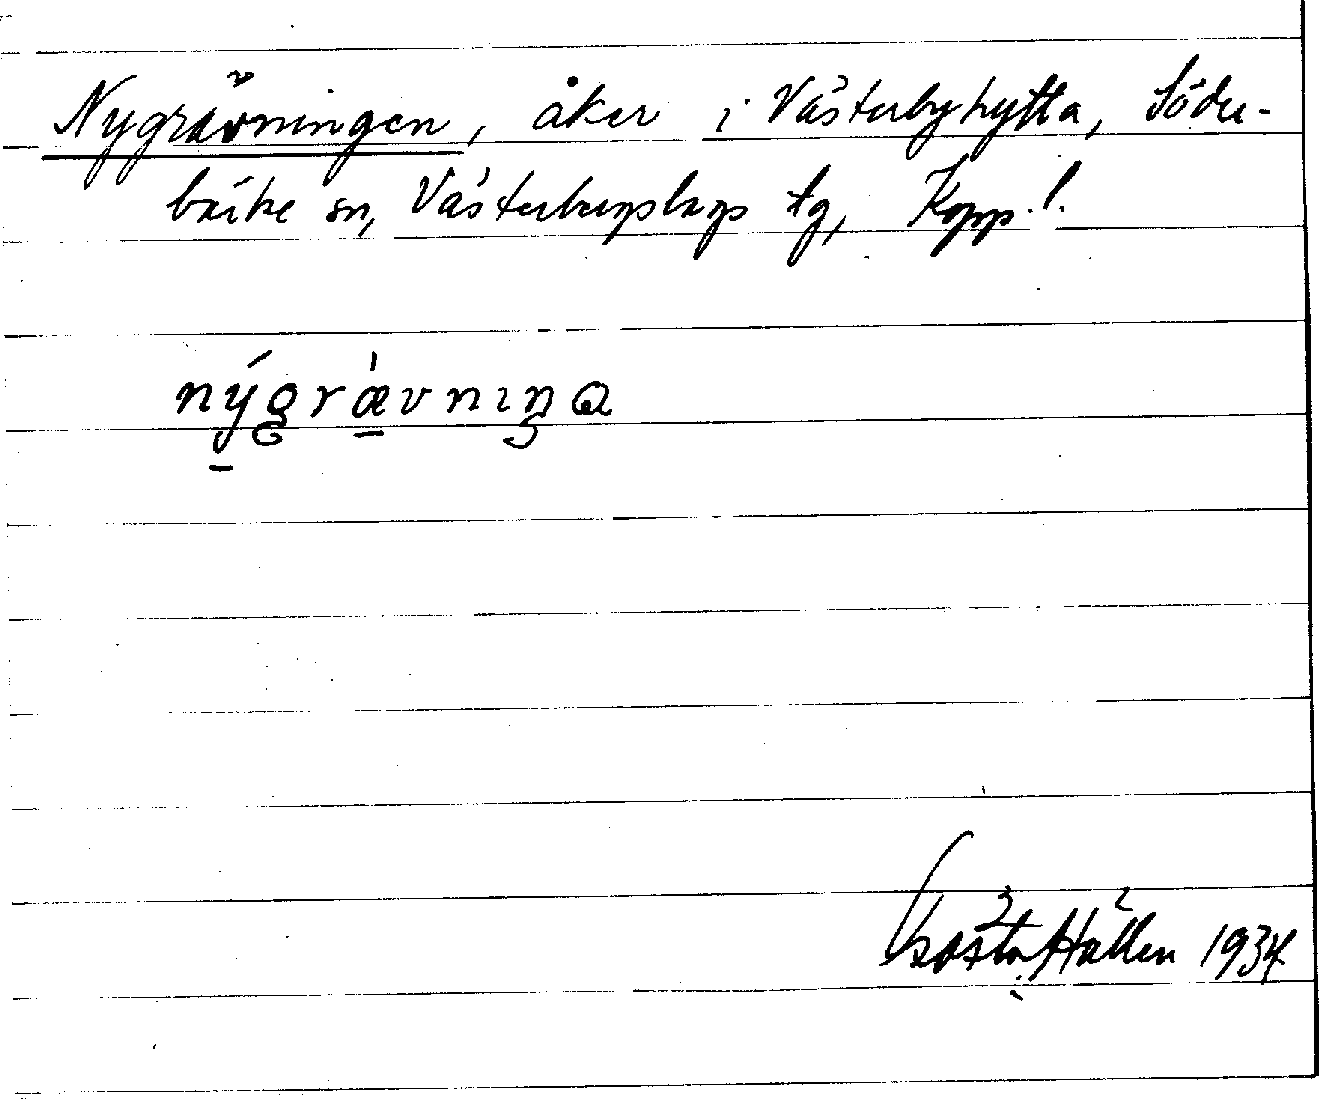 Nygrävningen, åker i Västerbyhytta, Söder-
bärke sn, Västerbergslags tg, Kopp. l.
nýgrǽvnıŋa
Gösta Hållén 1934